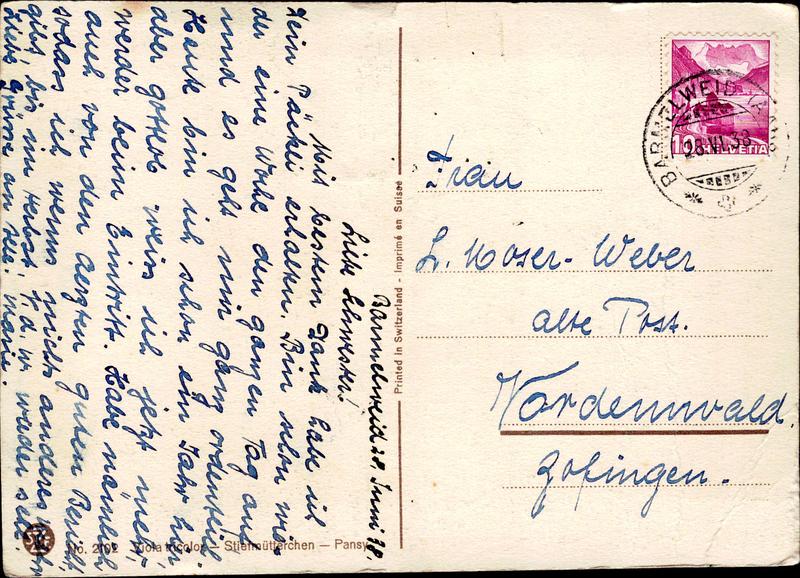 Barmelweid 28. Juni 38.
Liebe Schwester!
Mit bestem Dank habe ich
Dein Päckli erhalten. Bin schon wie-
der eine Woche den ganzen Tag auf
und es geht mir ganz ordentlich
Heute bin ich schon ein Jahr hier
aber gottlob weiss ich jetzt mehr,
werder beim Eintritt. Habe nämlich
auch von den Aerzten guten Bericht,
sodass ich wenns nichts anderes
gibt, bis im Herbst wieder
Liebe Grüsse an alle! Marie.
No. 2102 Viola tricolor – Stiefmütterchen – Pansy
Printed in Switzerland - Imprimé en Suisse
HELVETIA
10
BARMELWEID (AARG.)
28.VI.38
Frau
L. Moser-Weber
alte Post.
Vordemwald.
Zofingen.